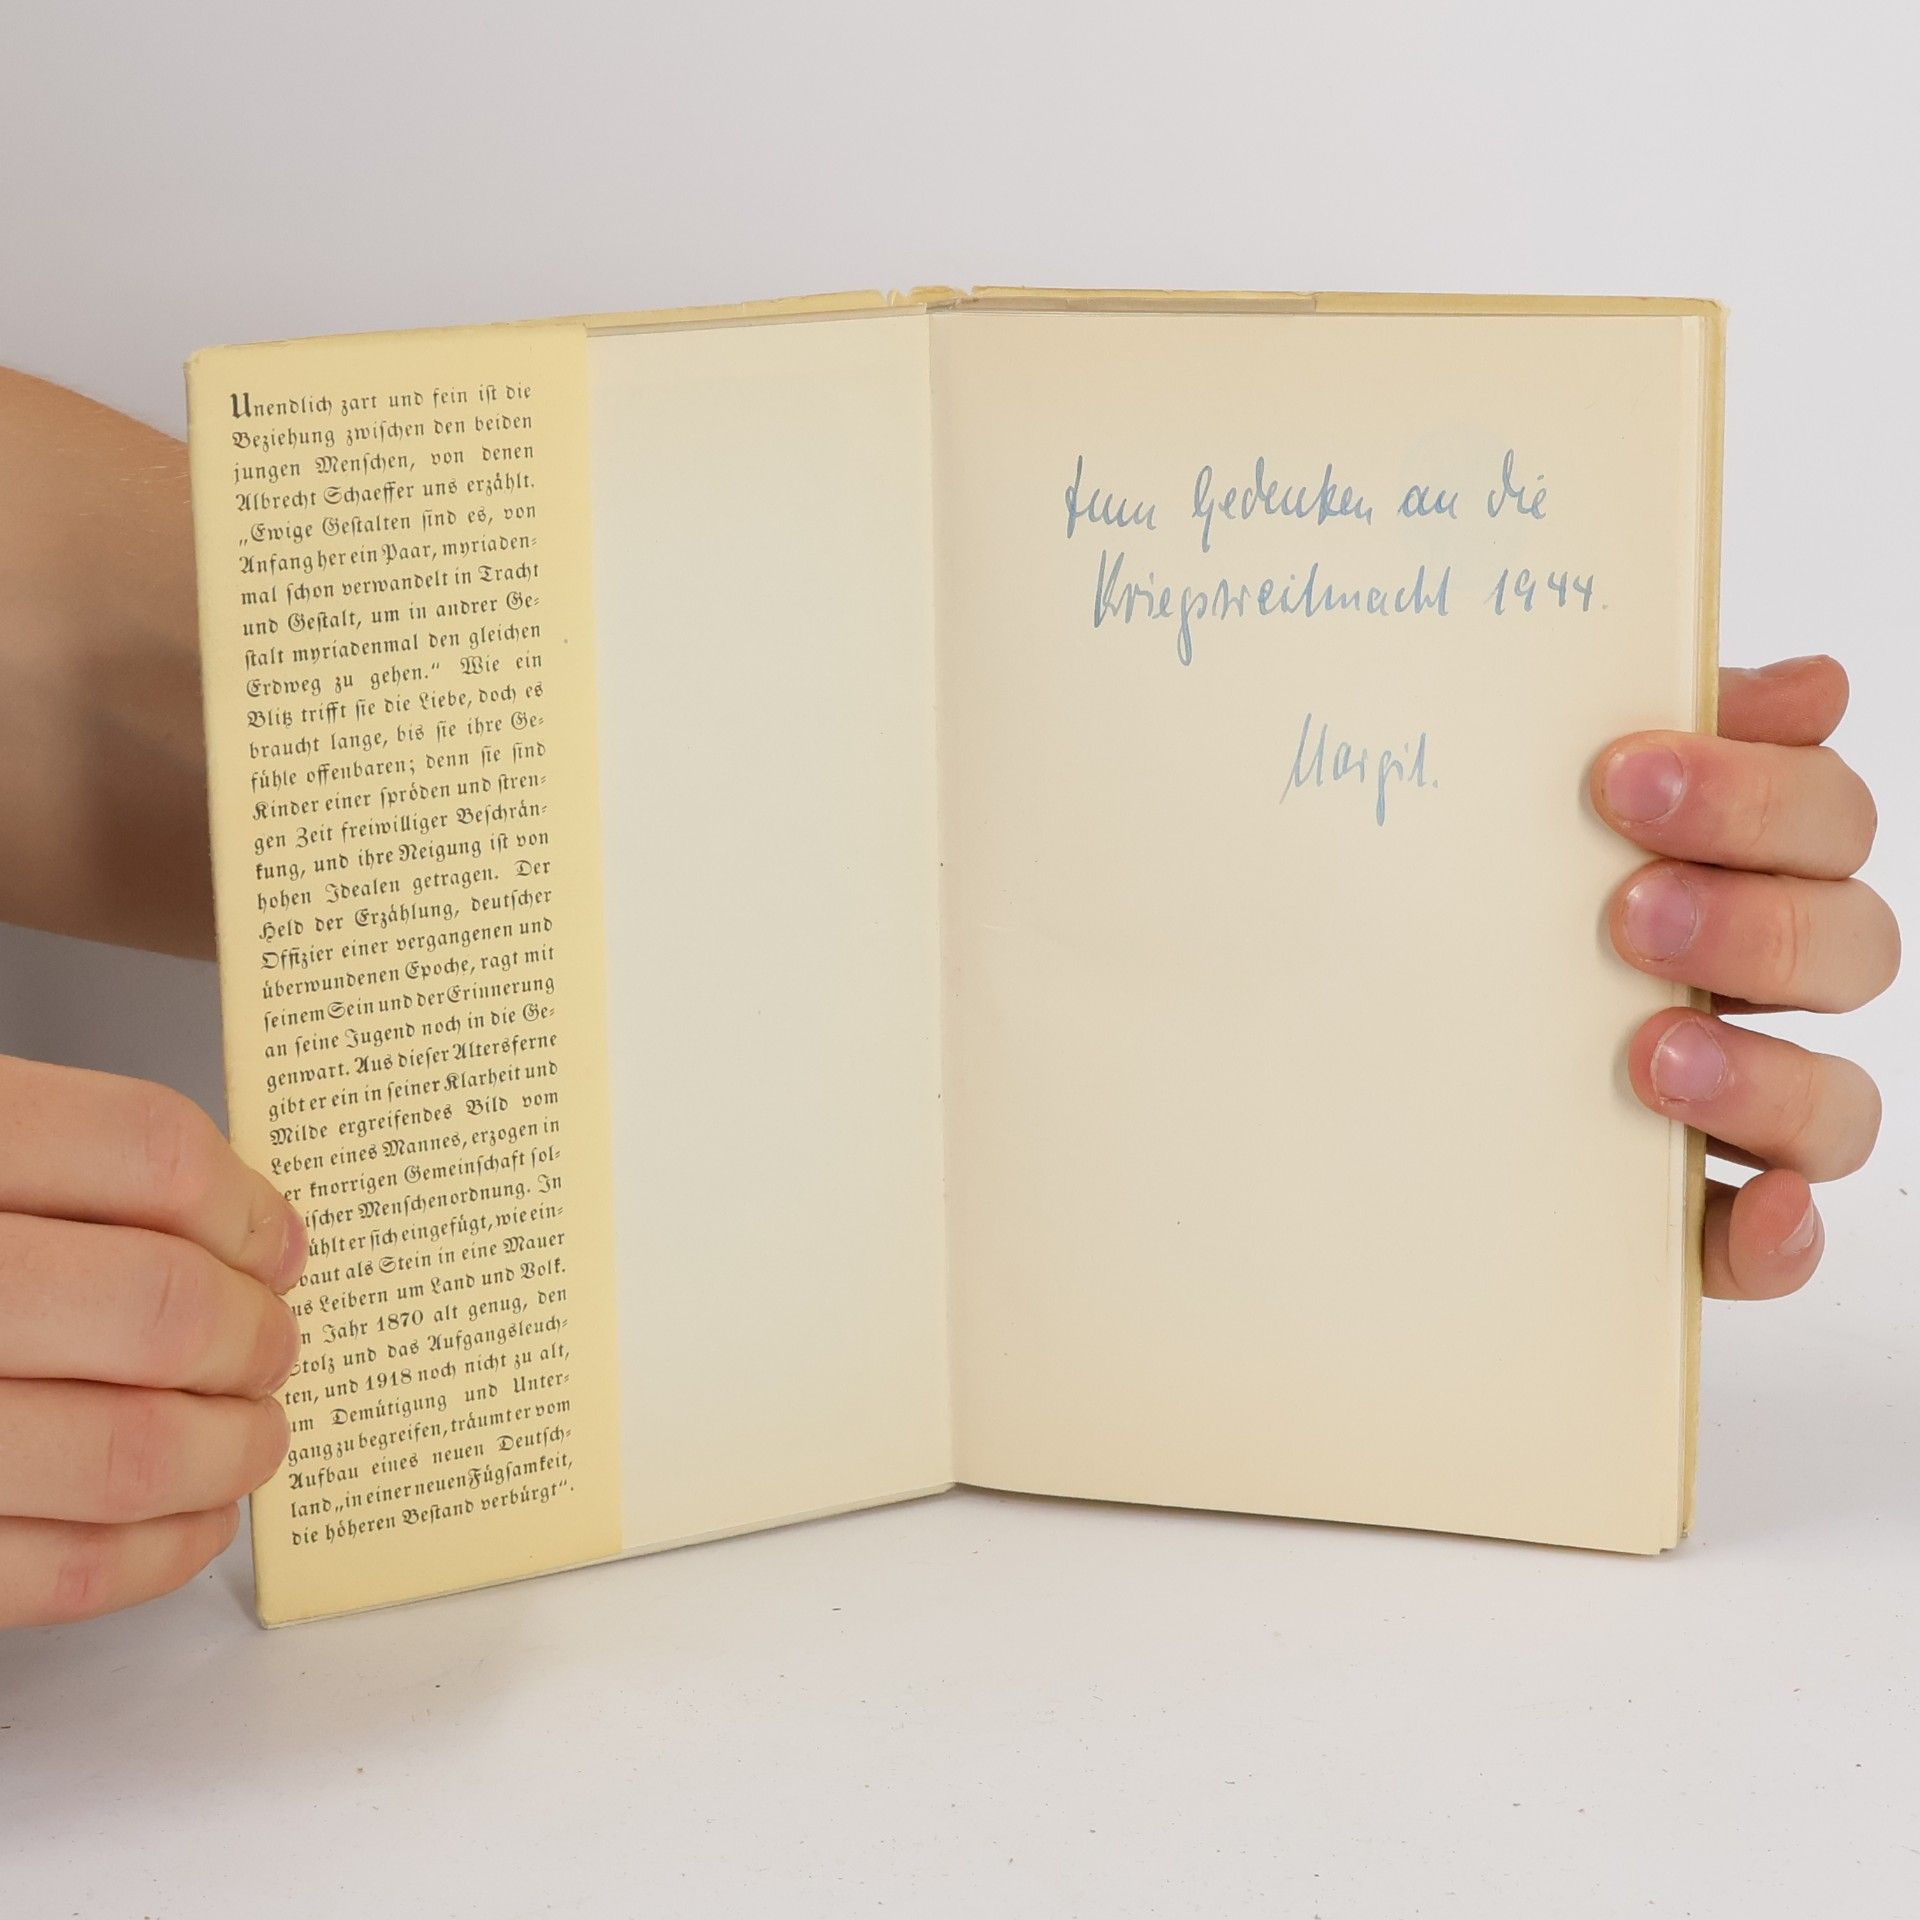 Unendlich zart und fein ist die
Beziehung zwischen den beiden
jungen Menschen, von denen
Albrecht Schaeffer uns erzählt.
„Ewige Gestalten sind es, von
Anfang her ein Paar, myriaden-
mal schon verwandelt in Tracht
und Gestalt, um in andrer Ge-
stalt myriadenmal den gleichen
Erdweg zu gehen.“ Wie ein
Blitz trifft sie die Liebe, doch es
braucht lange, bis sie ihre Ge-
fühle offenbaren; denn sie sind
Kinder einer spröden und stren-
gen Zeit freiwilliger Beschrän-
kung, und ihre Neigung ist von
hohen Idealen getragen. Der
Held der Erzählung, deutscher
Offizier einer vergangenen und
überwundenen Epoche, ragt mit
seinem Sein und der Erinnerung
an seine Jugend noch in die Ge-
genwart. Aus dieser Altersferne
gibt er ein in seiner Klarheit und
Milde ergreifendes Bild vom
Leben eines Mannes, erzogen in
er knorrigen Gemeinschaft sol-
ischer Menschenordnung. In
ühlt er sich eingefügt, wie ein-
baut als Stein in eine Mauer
us Leibern um Land und Volk.
n Jahr 1870 alt genug, den
Stolz und das Aufgangsleuch-
ten, und 1918 noch nicht zu alt,
um Demütigung und Unter-
gang zu begreifen, träumt er vom
Aufbau eines neuen Deutsch-
land „in einer neuen Fügsamkeit,
die höheren Bestand verbürgt“.
Zum Gedenken an die
Kriegsweihnacht 1944.
Margit.